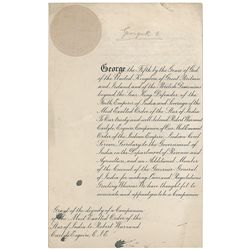 George the Fifth by the Grace of God
of the United Kingdom of Great Britain
and Ireland and of the British Dominions
beyond the Seas King Defender of the
Faith Emperor of India and Sovereign of the
Most Exalted Order of the Star of India
To Our trusty and well beloved Robert Warrand
Carlyle Esquire Companion of Our Most Eminent
Order of the Indian Empire Indian Civil
Service, Secretary to the Government of
India in the Department of Revenue and
Agriculture, and an Additional Member
of the Council of the Governor General
of India for making Laws and Regulations
Greeting Whereas We have thought fit to
nominate and appoint you to be a Companion
Grant of the dignity of a Companion
of the Most Exalted Order of the
Star of India to Robert Warrand
Carlyle Esquire, C.I.E.